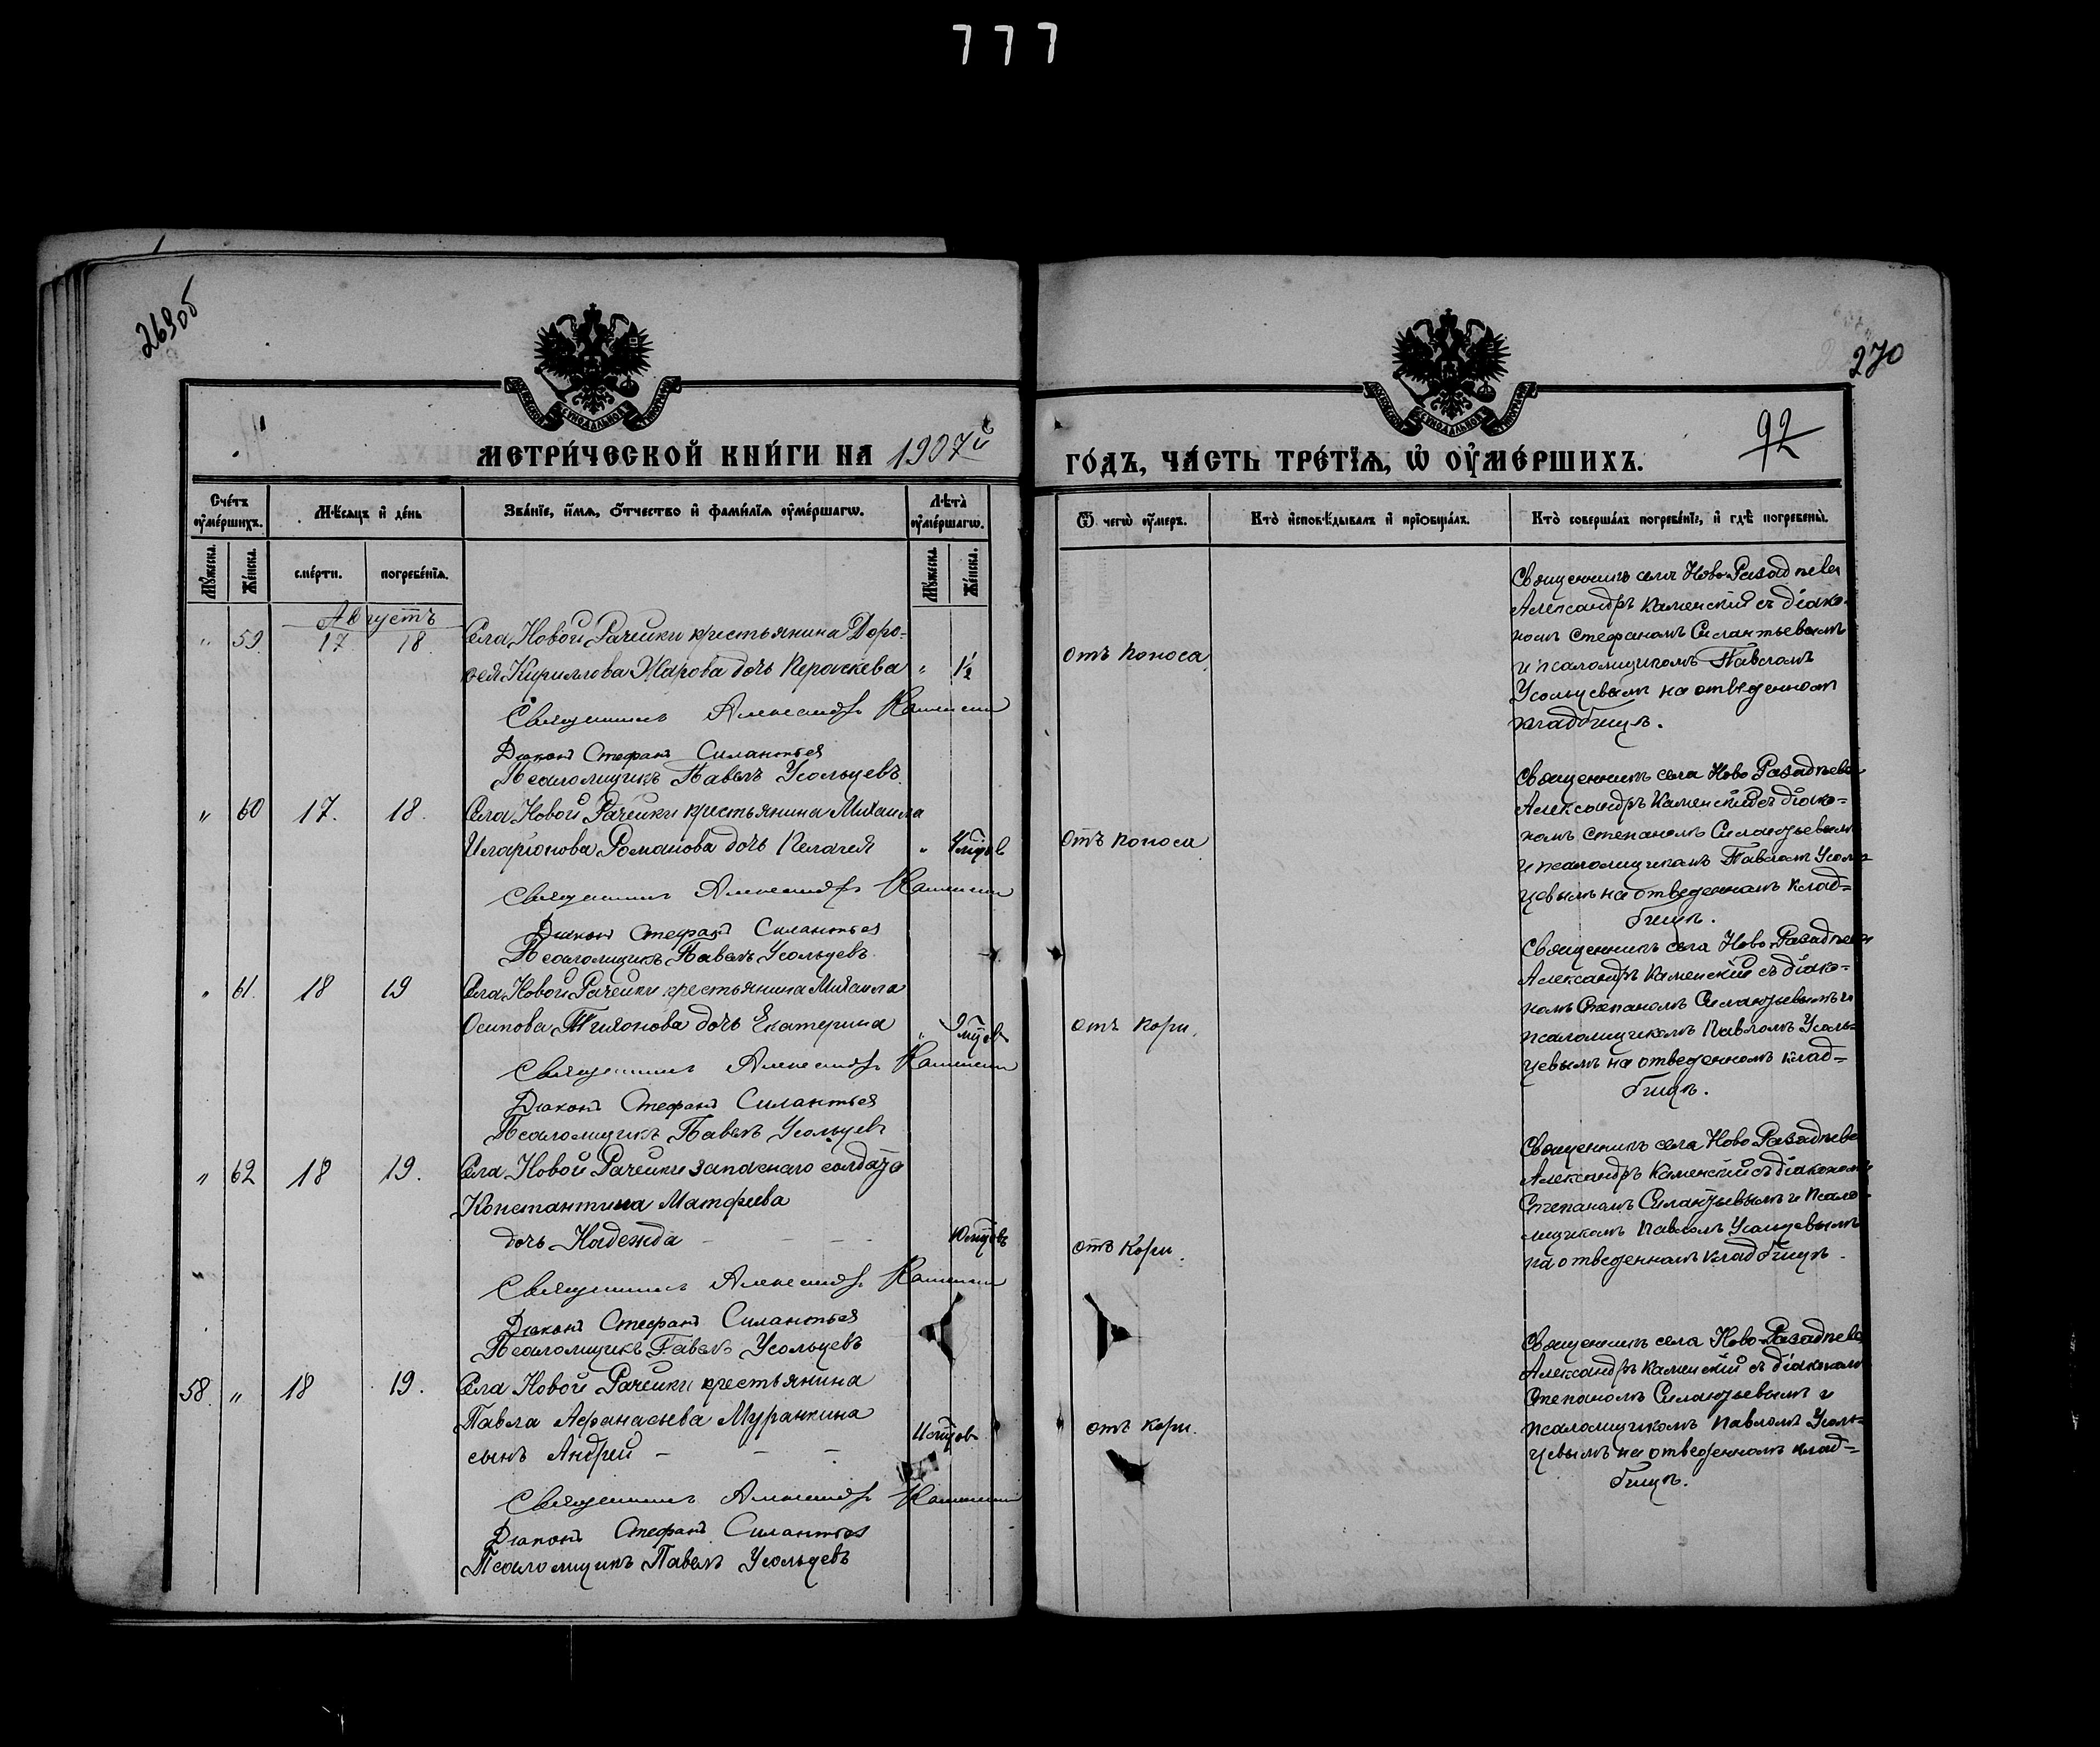 777
269об
270
92
МЕТРИ́ЧЕСКОЙ КНИ́ГИ НА 1907й
ГО́ДЪ, ЧА́СТЬ ТРЕ́ТІѦ, Ѡ҆ ОУ҆МЕ́РШИХЪ.
Сче́тъ оу҆ме́ршихъ.
Мѣ́сѧцъ и҆ де́нь
Зва́нїе, и҆́мѧ, ѻ҆́тчество и҆ фами́лїѧ оу҆ме́ршагѡ.
Лѣ̀та оу҆ме́ршагѡ.
Ѿ чегѡ̀ оу҆́меръ.
Кто̀ и҆сповѣ́дывалъ и҆ прїѡбща́лъ.
Кто̀ соверша́лъ погребе́нїе, и҆ гдѣ̀ погребены̀.
Мꙋ́жеска.
Же́нска.
сме́рти.
погребе́нїѧ.
Мꙋ́жеска.
Же́нска.
Августъ
" 59. 17. 18. Села Новой Рачейки крестьянина Доро-
фея Кириллова Жарова дочь Пероскева " 1½
отъ поноса
Священникъ Александръ Каменский
Діаконъ Стефанъ Силантьев
Псаломщикъ Павелъ Усольцевъ.
Священникъ села Ново-
Александръ Каменскій съ діако-
номъ Стефаномъ Силантьевымъ
и псаломщикомъ Павломъ
Усольцевымъ на отведенномъ
кладбищѣ.
" 60 17. 18. Села Новой Рачейки крестьянина Михаила
Иларіонова Романова дочь Пелагея "
отъ поноса
Священникъ Александръ Каменский
Діаконъ Стефанъ Силантьев
Псаломщикъ Павелъ Усольцевъ.
Священникъ села Ново
Александръ Каменскій съ діако=
номъ Степаномъ Силантьевым
и псаломщикомъ Павломъ Усоль
цевымъ на отведенномъ клад=
бищѣ.
" 61. 18 19 Села Новой Рачейки крестьянина Михаила
Осипова Тихонова дочь Екатерина " 9 мцов
отъ кори.
Священникъ Александръ Каменский
Діаконъ Стефанъ Силантьев
Псаломщикъ Павелъ Усольцевъ
Священникъ села Ново-
Александръ Каменскій съ діако=
номъ Степаномъ Силантьевымъ и
псаломщикомъ Павломъ Усоль=
цевымъ на отведенномъ клад=
бищѣ.
" 62 18 19. Села Новой Рачейки запаснаго солдата
Константина Матфеева
дочь Надежда - - - - 10 мцовъ
отъ Кори.
Священникъ Александръ Каменский
Діаконъ Стефанъ Силантьев
Псаломщикъ Павелъ Усольцевъ
Священникъ села Ново
Александръ Каменскій съ діакономъ
Степаномъ Силантьевымъ и псало-
мщикомъ Павломъ Усольцевымъ
на отведенномъ кладбищѣ.
58. " 18 19. Села Новой Рачейки крестьянина
Павла Афанасьева Муранкина
сынъ Андрей - - - 11 мцов
отъ кори.
Священникъ Александръ Каменский
Діаконъ Стефанъ Силантьев
Псаломщикъ Павелъ Усольцевъ
Священникъ села Ново-
Александръ Каменскій съ діакономъ
Степаномъ Силантьевымъ и
псаломщикомъ Павломъ Усоль=
цевымъ на отведенномъ клад=
бищѣ.